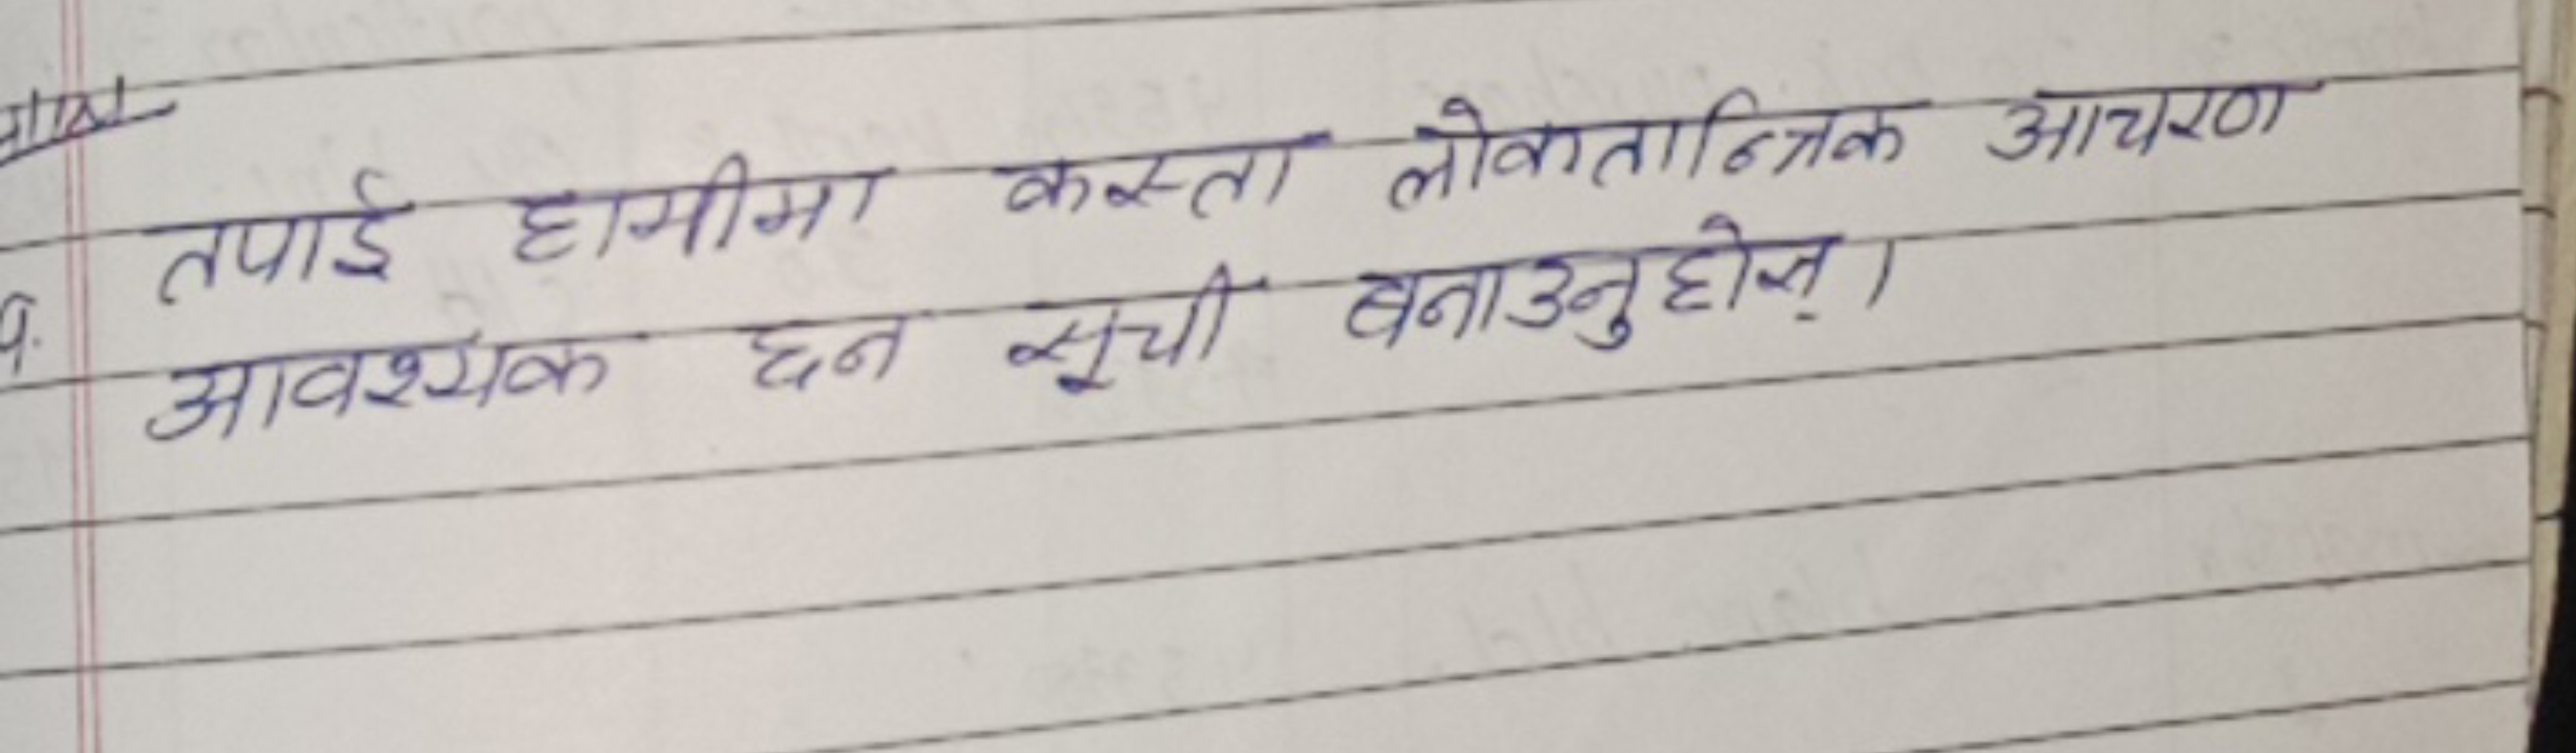 तपाई हामीमा कस्ता लोकतान्त्रिक आचरण
आवश्यक छन सूची बनाउनुहोस्।